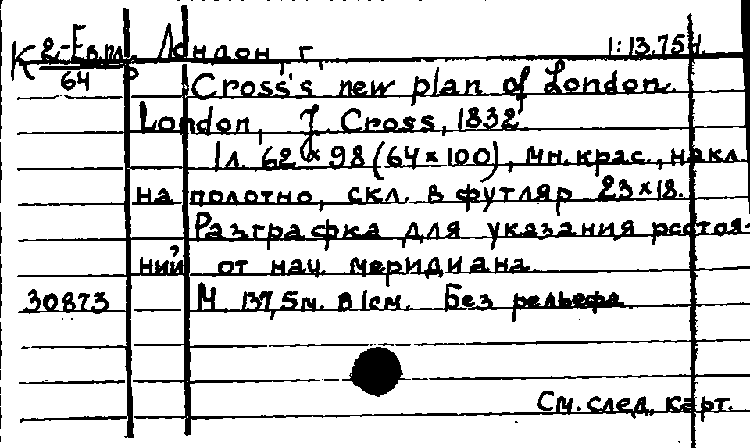 К 2-Ев.пл. Лондон, г. 1:13.75
64
Cross's new plan of London.
London, J. Cross, 1832
1 л. 62×98 (64×100), мн. крас., накл.
на полотно, скл. в футляр 23×18.
Разграфка для указания расстоя-
ний от нач. меридиана
30873 М. 137,5м. в 1см. Без рельефа
См. след. карт.